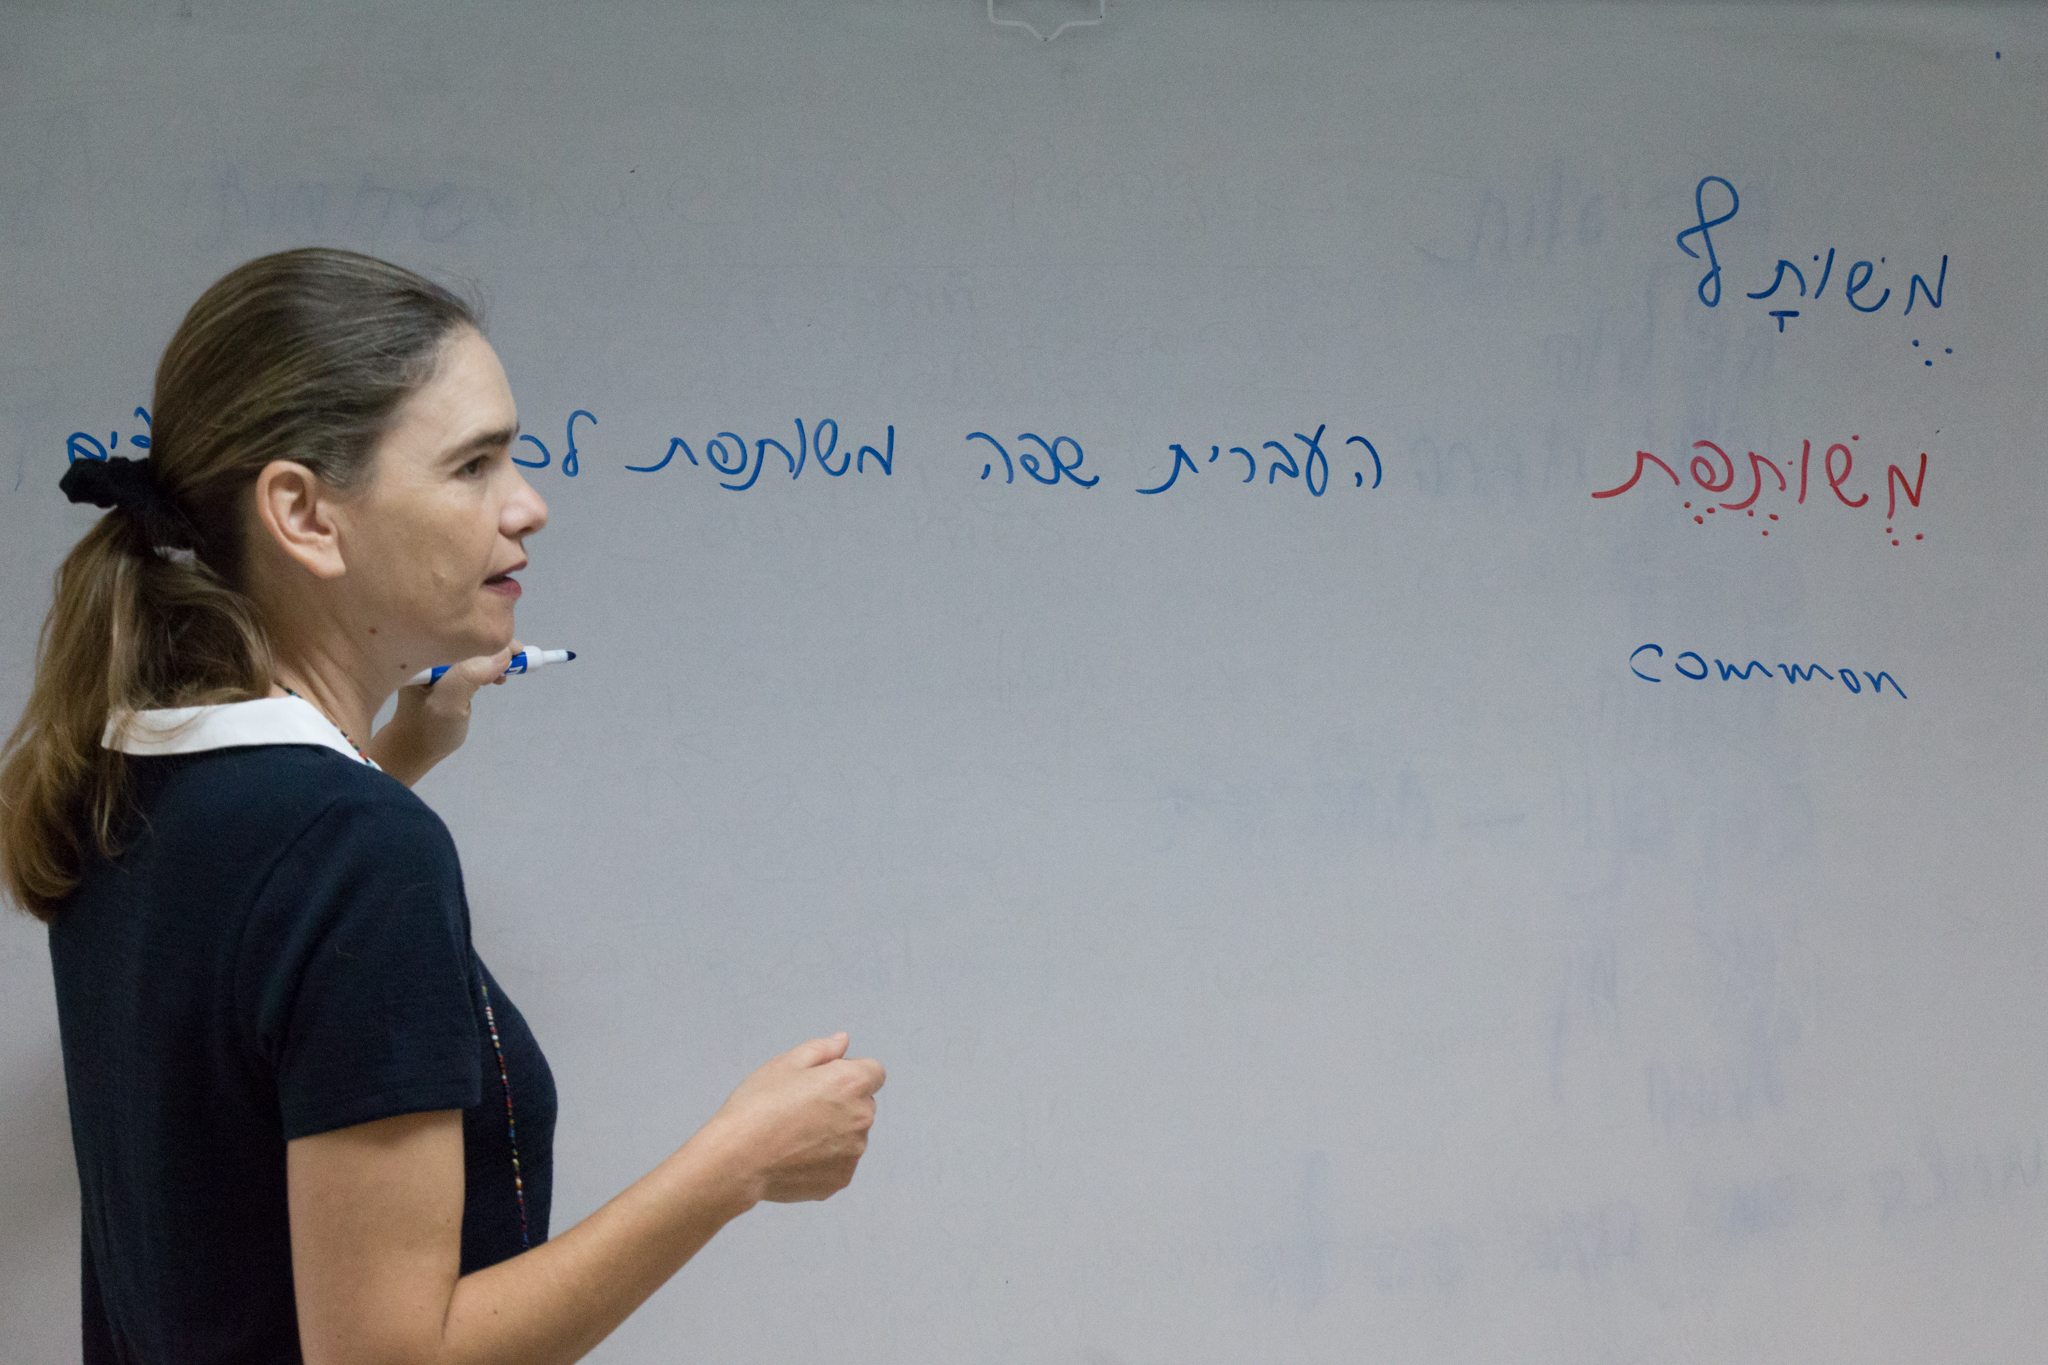 מֶשׁוֹתָף
מֶשׁוֹתֶפֶת
העברית שפה משותפת
common